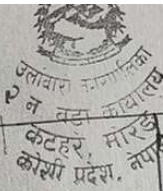 उर्लाबारी नगरपालिका
२ न वडा कार्यालय
कटहरे, मोरङ
कोशी प्रदेश, नेपा